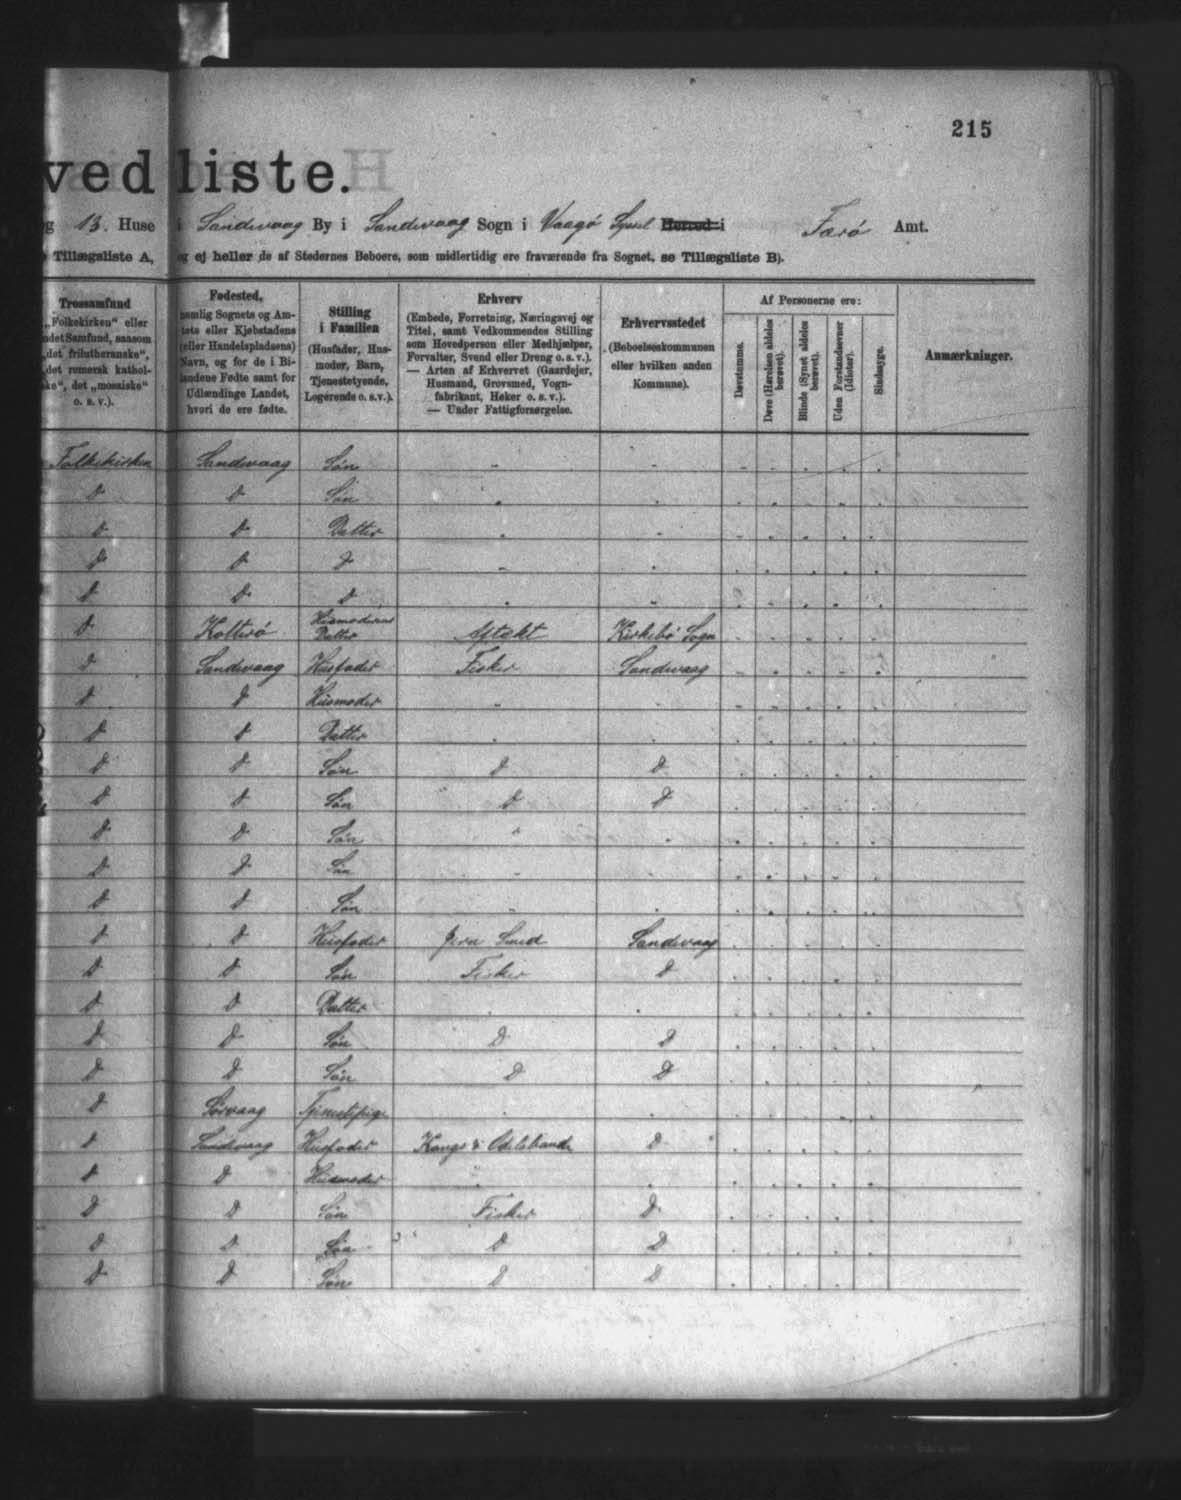 215
ved liste.
13. Huse i Sandevaag By i Sandevaag Sogn i Vaagø Syssel Herred i Færø Amt.
Tillægsliste A, og ej heller de af Stedernes Beboere, som midlertidig ere fraværende fra Sognet, se Tillægsliste B).
Trossamfund
„Folkekirken" eller
andet Samfund, saasom
„det frilutheranske",
„det romersk kathol-
ske", det „mosaiske"
o. s. v.).
Fødested,
nemlig Sognets og Am-
tets eller Kjøbstadens
(eller Handelspladsens)
Navn, og for de i Bi-
landene Fødte samt for
Udlændinge Landet,
hvori de ere fødte.
Stilling
i Familien
(Husfader, Hus-
moder, Barn,
Tjenestetyende,
Logerende o. s. v.).
Erhverv
(Embede, Forretning, Næringsvej og
Titel, samt Vedkommendes Stilling
som Hovedperson eller Medhjælper,
Forvalter, Svend eller Dreng o. s. v.).
— Arten af Erhvervet (Gaardejer,
Husmand, Grovsmed, Vogn-
fabrikant, Høker o. s. v.).
— Under Fattigforsørgelse.
Erhvervsstedet
(Beboelseskommunen
eller hvilken anden
Kommune).
Af Personerne ere:
Døvstumme.
Døve (Hørelsen aldeles
berøvet).
Blinde (Synet aldeles
berøvet).
Uden Forstandsevner
(Idioter).
Sindssyge.
Anmærkninger.
Folkekirken Sandevaag Søn
D D Søn
D D Datter
D D D
D D D
D Kolterø Husmoderens Datter Aftækt Kirkebø Sogn
D Sandevaag Husfader Fisker Sandevaag
D D Husmoder
D D Datter
D D Søn D D
D D Søn D D
D D Søn
D D Søn
D D Søn
D D Husfader Jern Smed Sandevaag
D D Søn Fisker D
D D Datter
D D Søn D D
D D Søn D D
D Sørvaag Tjenestepige
D Sandevaag Husfader Kongs & Odelsbonde D
D D Husmoder
D D Søn Fisker D
D D Søn D D
D D Søn D D